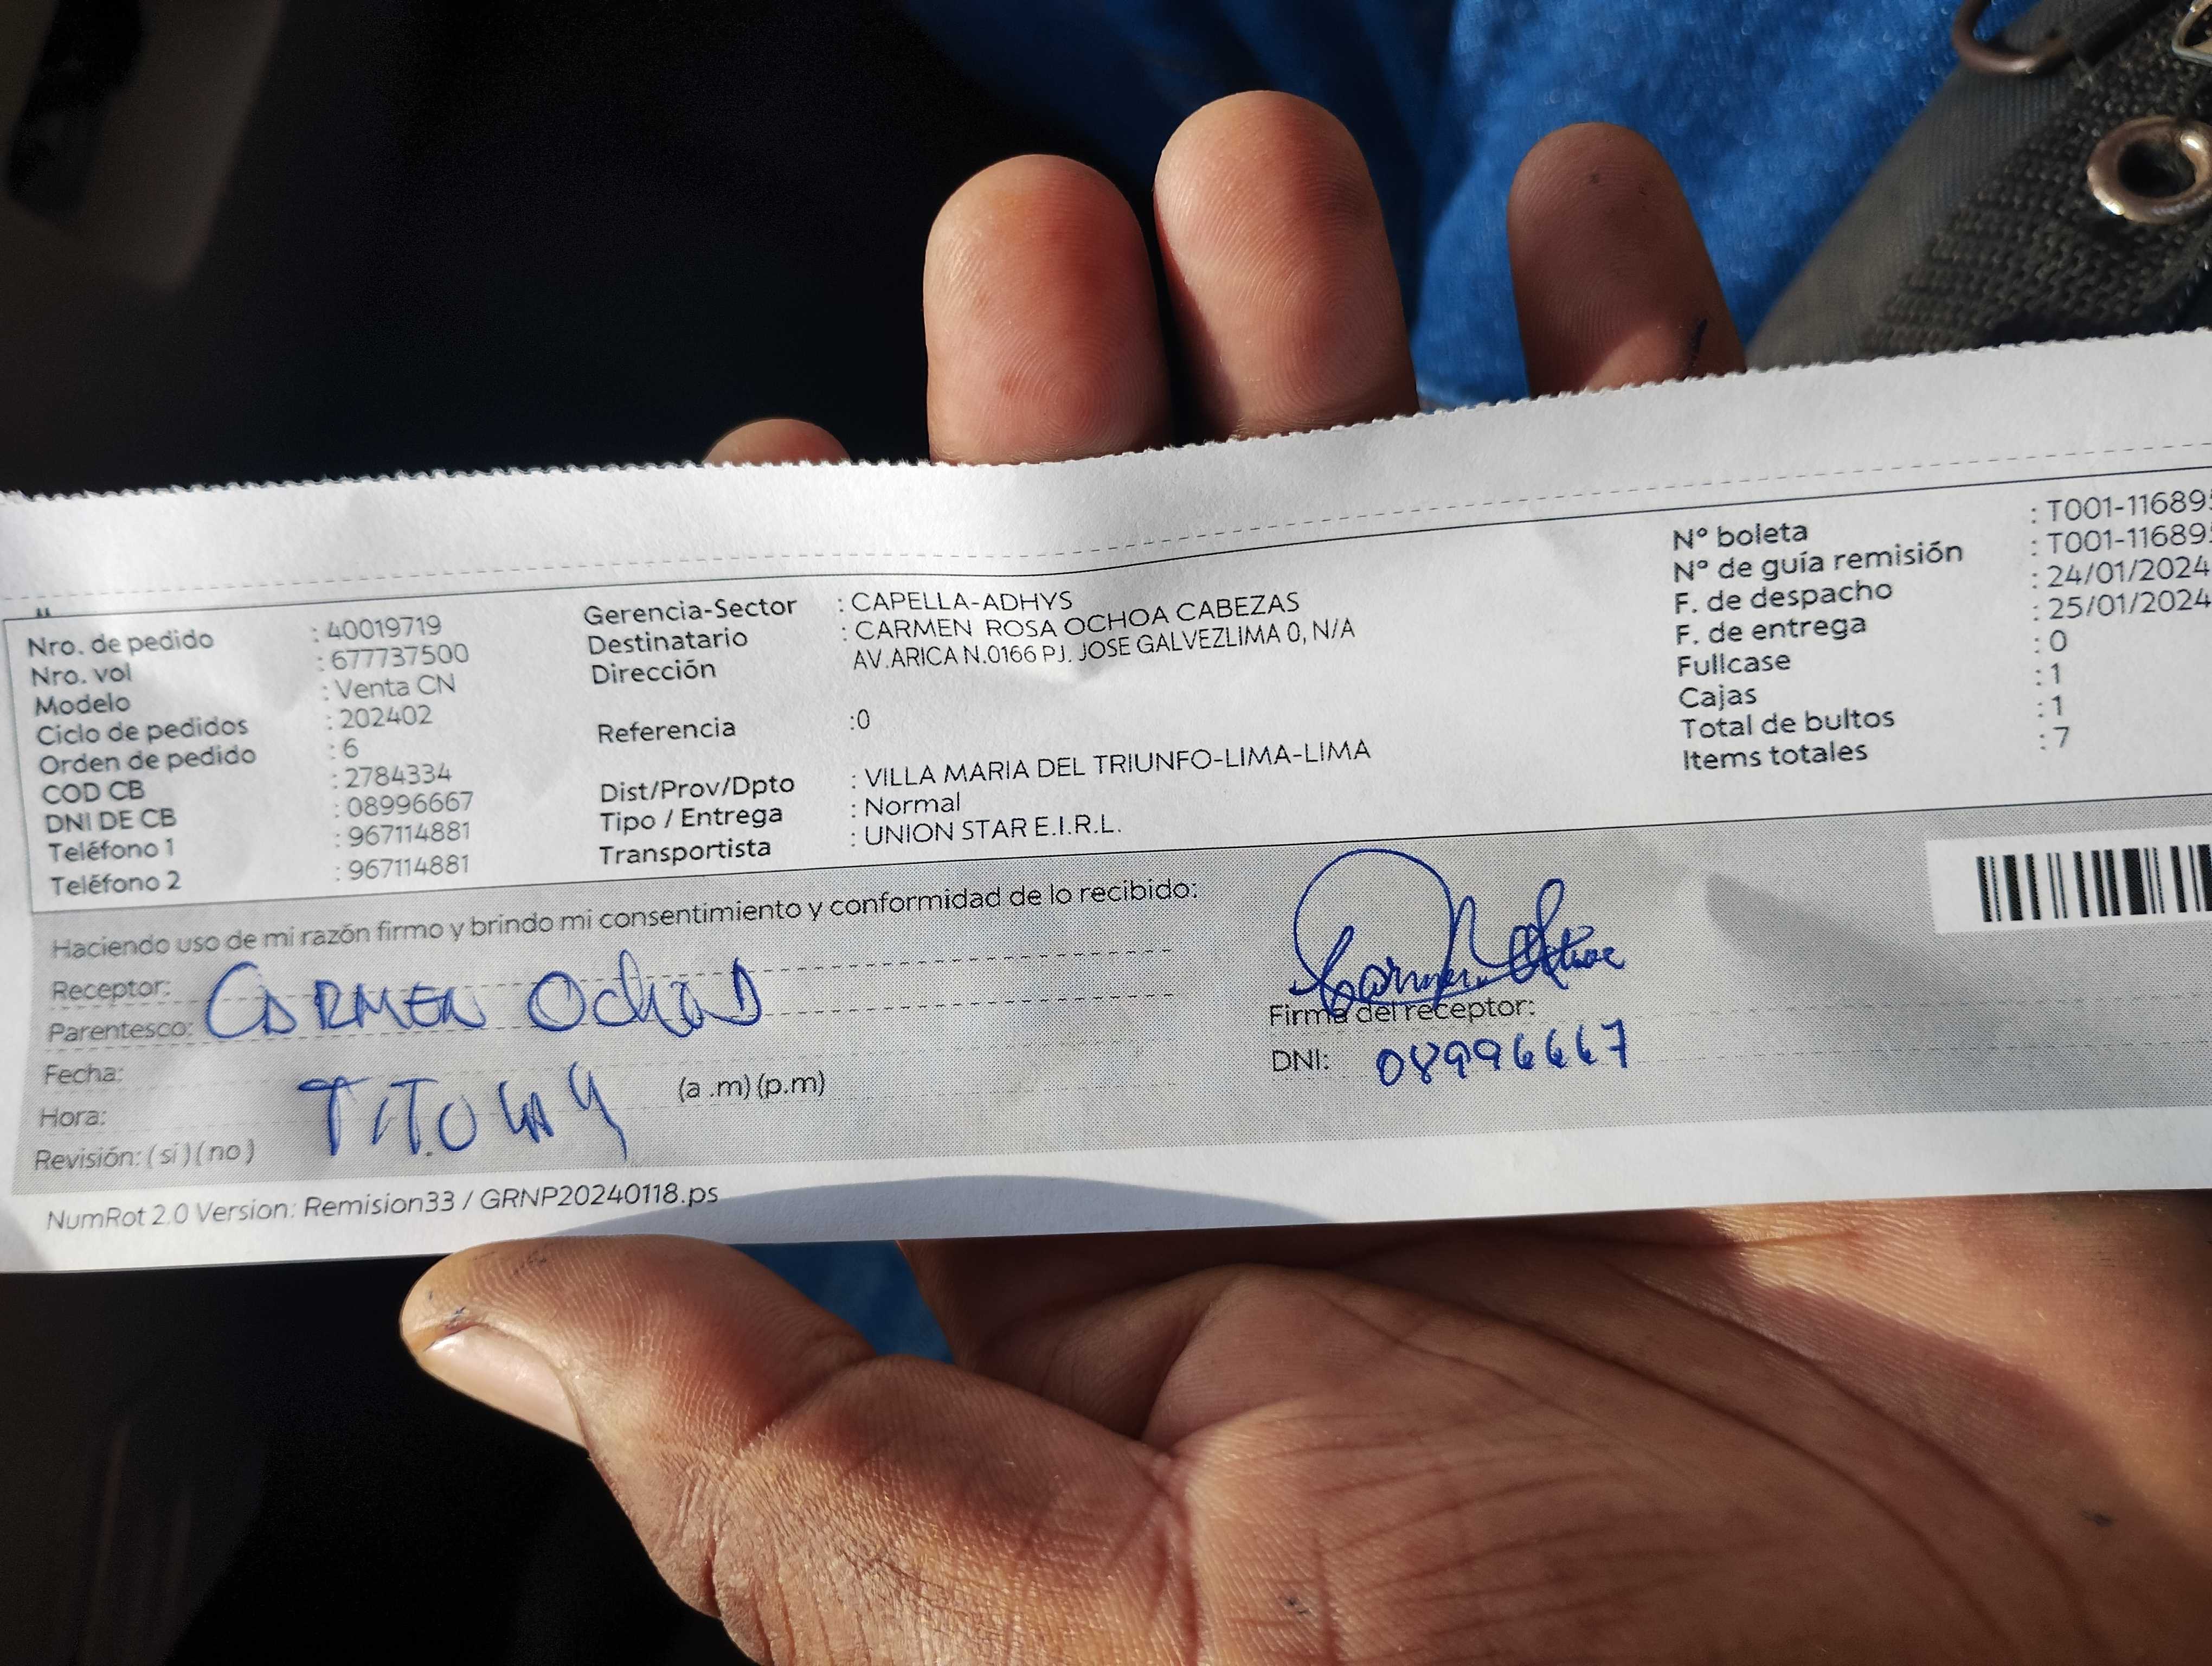 Nro. de pedido : 40019719
Nro. vol : 677737500
Modelo : Venta CN
Ciclo de pedidos : 202402
Orden de pedido : 6
COD CB : 2784334
DNI DE CB : 08996667
Teléfono 1 : 967114881
Teléfono 2 : 967114881
Gerencia-Sector : CAPELLA-ADHYS
Destinatario : CARMEN ROSA OCHOA CABEZAS
Dirección AV.ARICA N.0166 PJ. JOSE GALVEZLIMA 0, N/A
Referencia :0
Dist/Prov/Dpto : VILLA MARIA DEL TRIUNFO-LIMA-LIMA
Tipo / Entrega : Normal
Transportista : UNION STAR E.I.R.L.
N° boleta : T001-11689
N° de guía remisión : T001-11689
F. de despacho : 24/01/2024
F. de entrega : 25/01/2024
Fullcase : 0
Cajas : 1
Total de bultos : 1
Items totales : 7
Haciendo uso de mi razón firmo y brindo mi consentimiento y conformidad de lo recibido:
Receptor: CARMEN OCHOA
Parentesco:
Fecha:
Hora: TITULAR (a .m) (p.m)
Revisión: ( si ) ( no )
Carmen Ochoa
Firma del receptor:
DNI: 08996667
NumRot 2.0 Version: Remision33 / GRNP20240118.ps